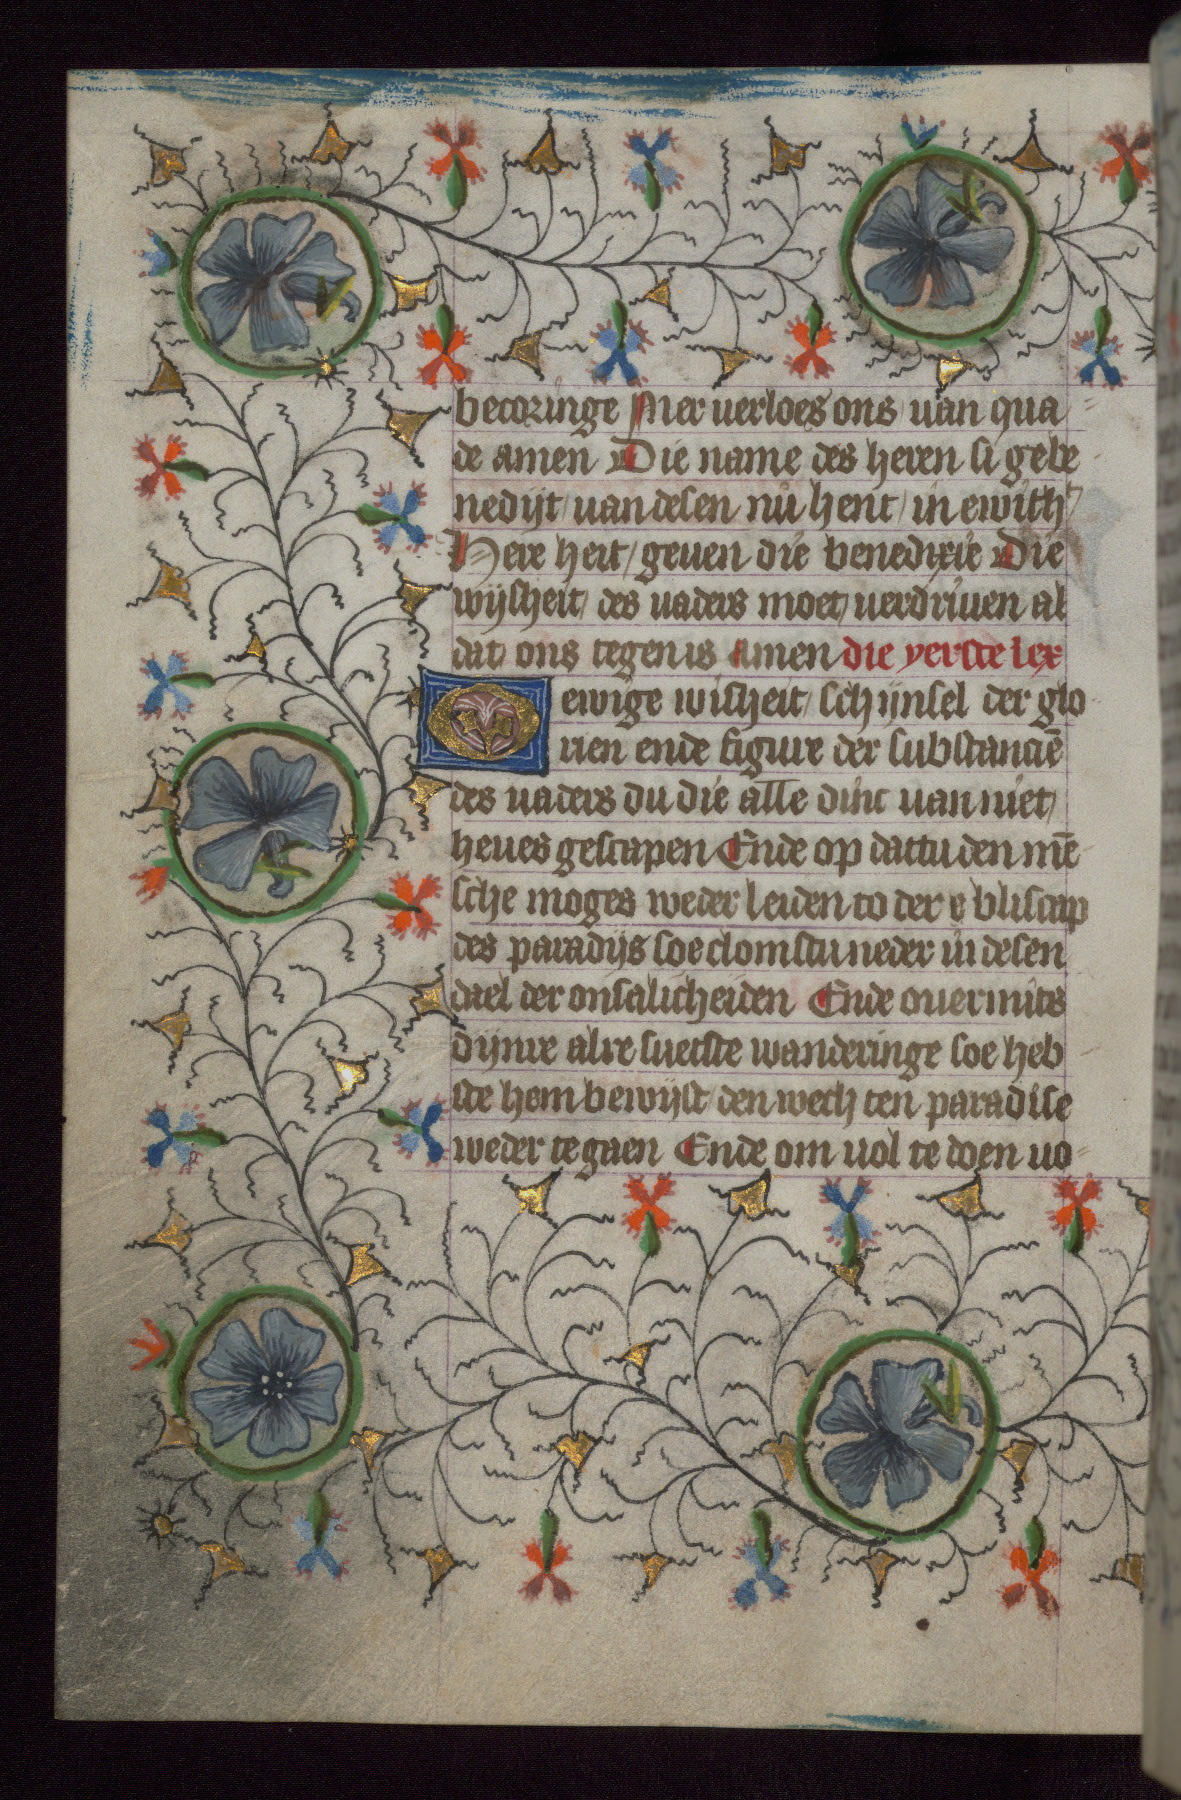 becoringe Mer verloes ons van qua
de amen Die name des heren si gebe
nedijt van desen nu hent in ewich
Here heit geven die benedixie Die
wijsheit des vaders moet verdriven al
dat ons tegen is amen die yerste lex
O ewige wisheit schijnsel der glo
rien ende figure der substanciē
des vaders du die alle dinc van niet
heves gescapen Ende op dattu den mē
sche moges weder leiden to der e bliscap
des paradijs soe clomstu neder in desen
dael der onsalicheiden Ende overmits
dijnre alre suetste wanderinge soe heb
ste hem bewijst den wech ten paradise
weder te gaen Ende om vol te doen vo